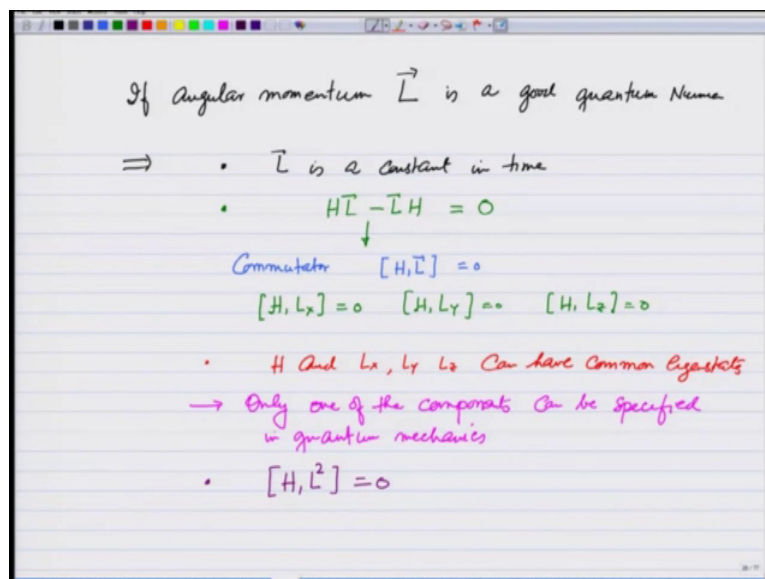 If angular momentum L⃗ is a good quantum Nume
⇒ • L⃗ is a constant in time
• HL⃗ - L⃗H = 0
↓
Commutator [H, L⃗] = 0
[H, Lx] = 0 [H, Ly] = 0 [H, Lz] = 0
• H and Lx, Ly Lz Can have common Eigenstats
→ Only one of the components can be specified
in quantum mechanics
• [H, L²] = 0